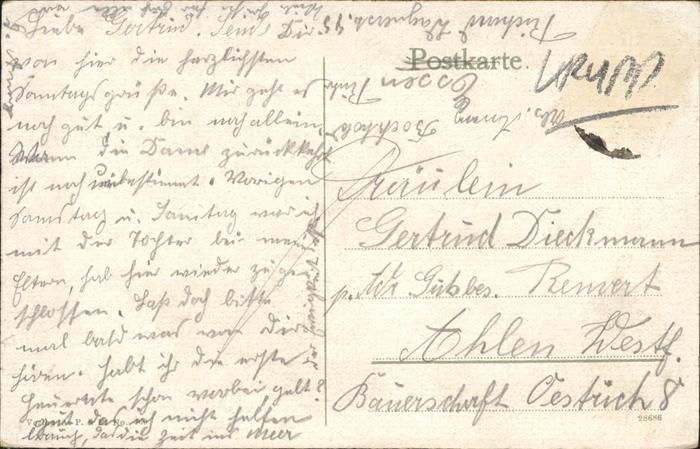 Liebe Gertrud. Sende Dir
von hier die herzlichsten
Sonntagsgrüße. Mir geht es
noch gut u. bin noch allein,
Wann die Dame zurückkehrt
ist noch unbestimmt. Vorigen
Samstag u. Sonntag war ich
mit der Tochter bei meinen
Eltern, hab hier wieder zuge-
schlossen. Laß doch bitte
mal bald was von Dir
hören. Habt ihr die erste
Heuernte schon vorbei gehabt?
gut das ich nicht helfen
brauch, da die Zeit ins Meer
Postkarte.
Abs. Anna
Essen Ruhr
Richard Wagnerstr. 45
Fräulein
Gertrud Dieckmann
p. Adr. Gutsbes. Remert
Ahlen Westf.
Bauerschaft Oestrich 8
28686